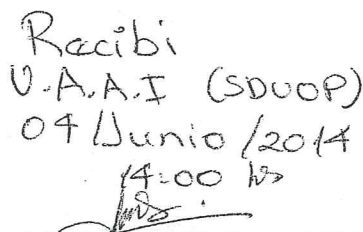 Recibi
U.A.A.I (SDUOP)
04/Junio/2014
14:00 hs